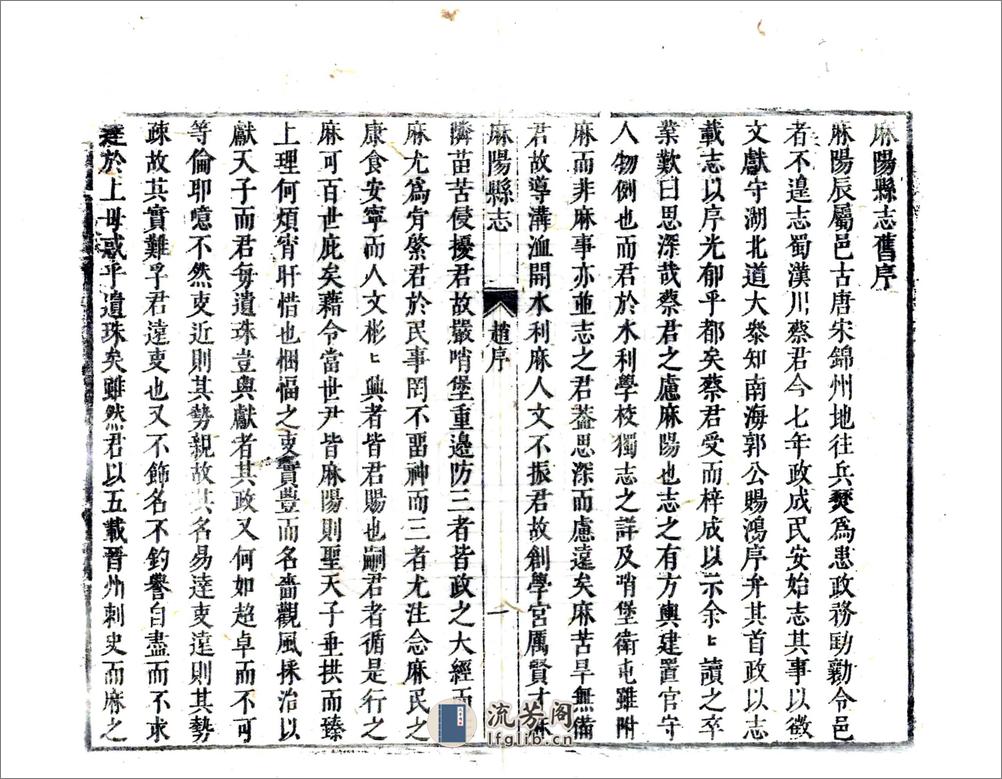 麻陽縣志舊序
麻陽辰屬邑古唐宋錦州地往兵燹爲患政務勷勷令邑
者不遑志蜀漢川蔡君今七年政成民安始志其事以徵
文獻守湖北道大叅知南海郭公賜鴻序弁其首政以志
載志以序光郁乎都矣蔡君受而梓成以示余〻讀之卒
業歎曰思深哉蔡君之慮麻陽也志之有方輿建置官守
人物例也而君於水利學校獨志之詳及哨堡衛屯雖附
麻而非麻事亦並志之君葢思深而慮遠矣麻苦旱無備
君故導溝洫開水利麻人文不振君故創學宮厲賢才
麻陽縣志
趙序
一
隣苗苦侵擾君故嚴哨堡重邊防三者皆政之大經而
麻尤爲肯綮君於民事罔不畱神而三者尤注念麻民之
康食安寧而人文彬〻興者皆君賜也嗣君者循是行之
麻可百世庇矣藉令當世尹皆麻陽則聖天子垂拱而臻
上理何煩宵旰惜也悃愊之吏實豐而名嗇觀風採治以
獻天子而君每遺珠豈與獻者其政又何如超卓而不可
等倫耶噫不然吏近則其勢親故其名易逹吏遠則其勢
疎故其實難孚君遠吏也又不飾名不釣譽自盡而不求
逹於上毋惑乎遺珠矣雖然君以五載晉州刺史而麻之
流芳阁
lfglib.cn